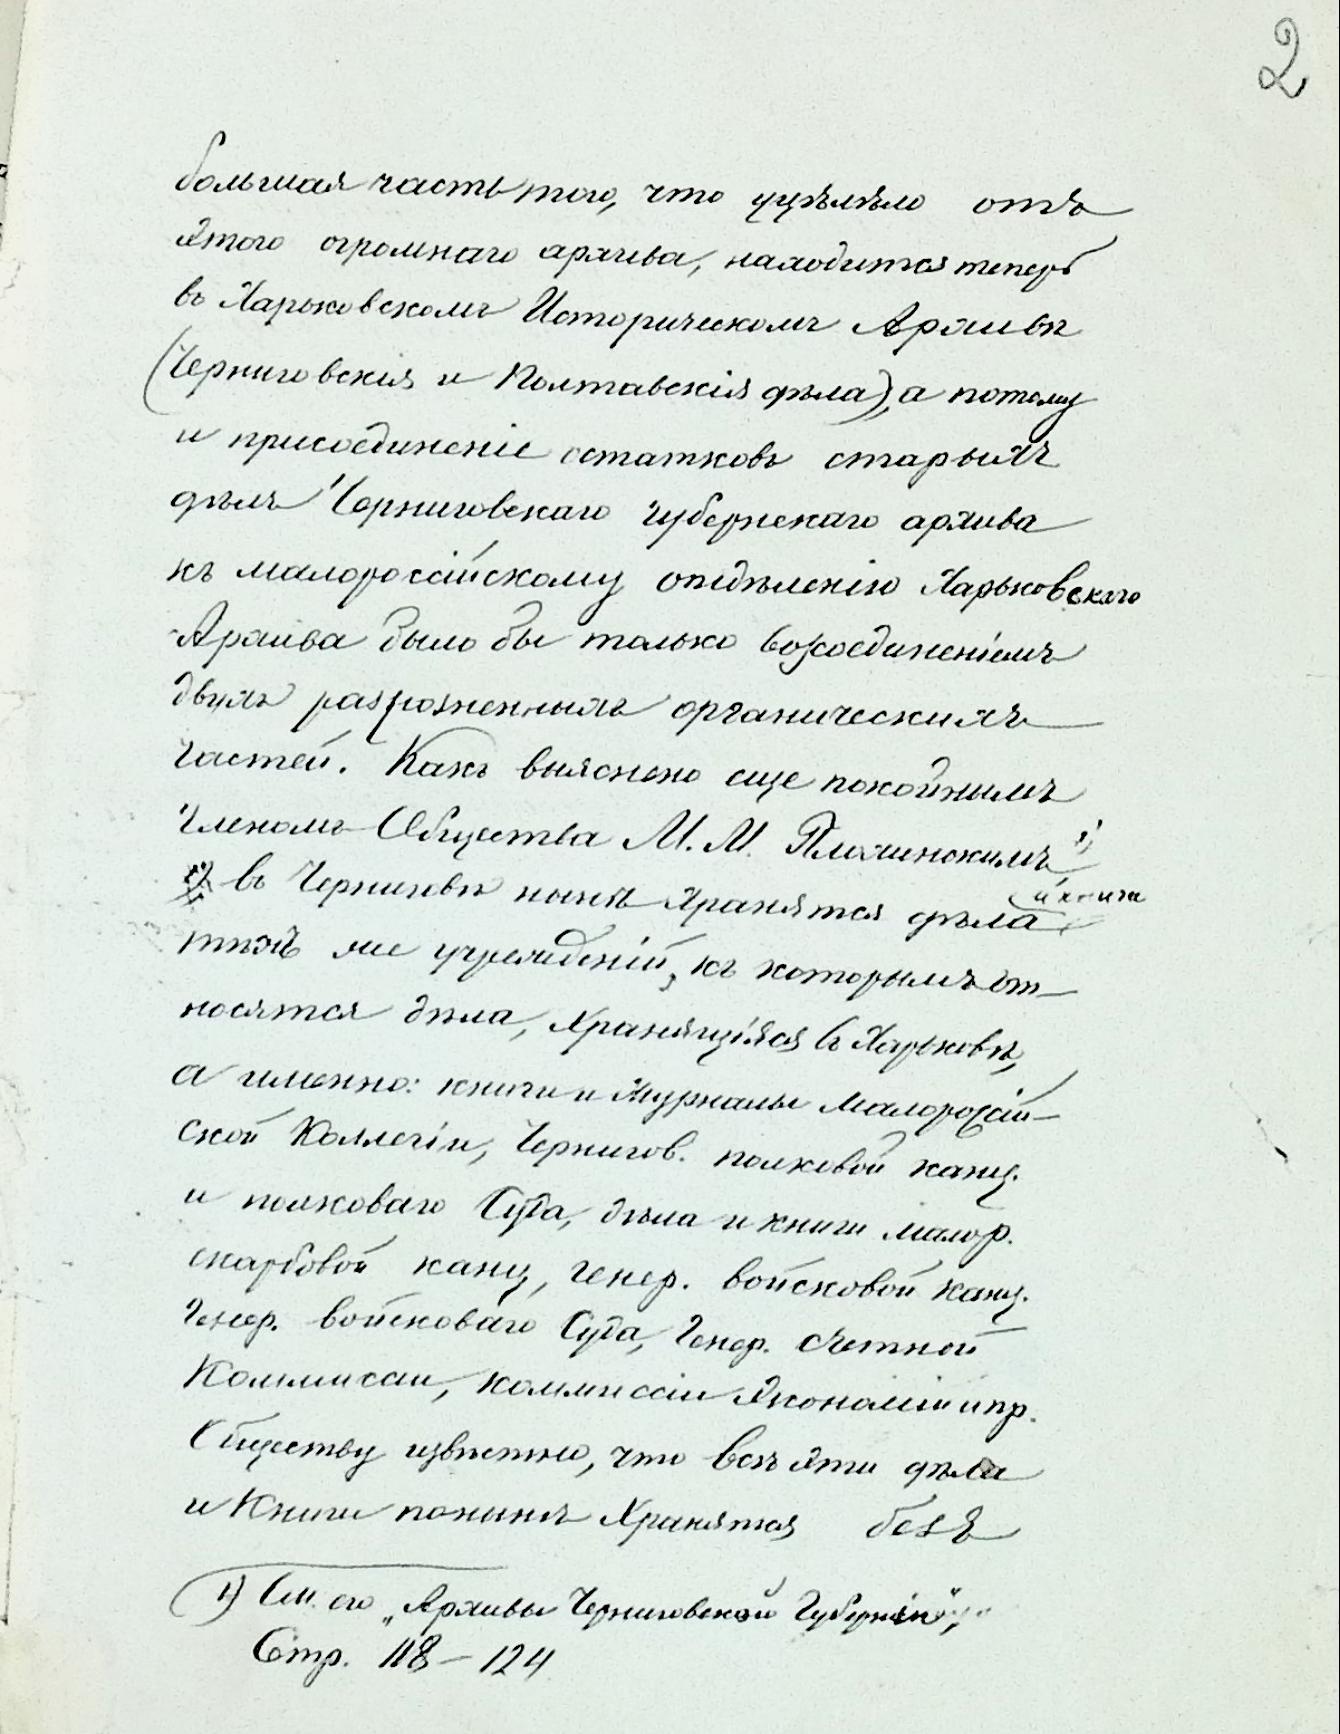 2
большая часть того, что уцѣлѣло отъ
этого огромнаго архива, находится теперь
въ Харьковскомъ Историческомъ Архивѣ
(Черниговскія и Полтавскія дѣла), а потому
и присоединеніе остатковъ старыхъ
дѣлъ Черниговскаго губернскаго архива
къ малороссійскому отдѣленію Харьковскаго
Архива было бы только возсоединеніемъ
двухъ разрозненныхъ органическихъ
частей. Какъ выяснено еще покойнымъ
членомъ Общества М. М. Плохинскимъ 1)
въ Черниговѣ нынѣ хранятся дѣла и книги
тѣхъ же учрежденій, къ которымъ от-
носятся дѣла, хранящіяся въ Харьковѣ,
а именно: книги и журналы Малороссій-
ской Коллегіи, Чернигов. полковой канц.
и полковаго Суда, дѣла и книги малор.
скарбовой канц, генер. войсковой канц.
Генер. войсковаго Суда, Генер. счетной
Коммисси, коммиссіи Экономіи и пр.
Обществу извѣстно, что всѣ эти дѣла
и Книги понынѣ хранятся безъ
1) См. его „Архивы Черниговской Губерніи",
Стр. 118 – 124